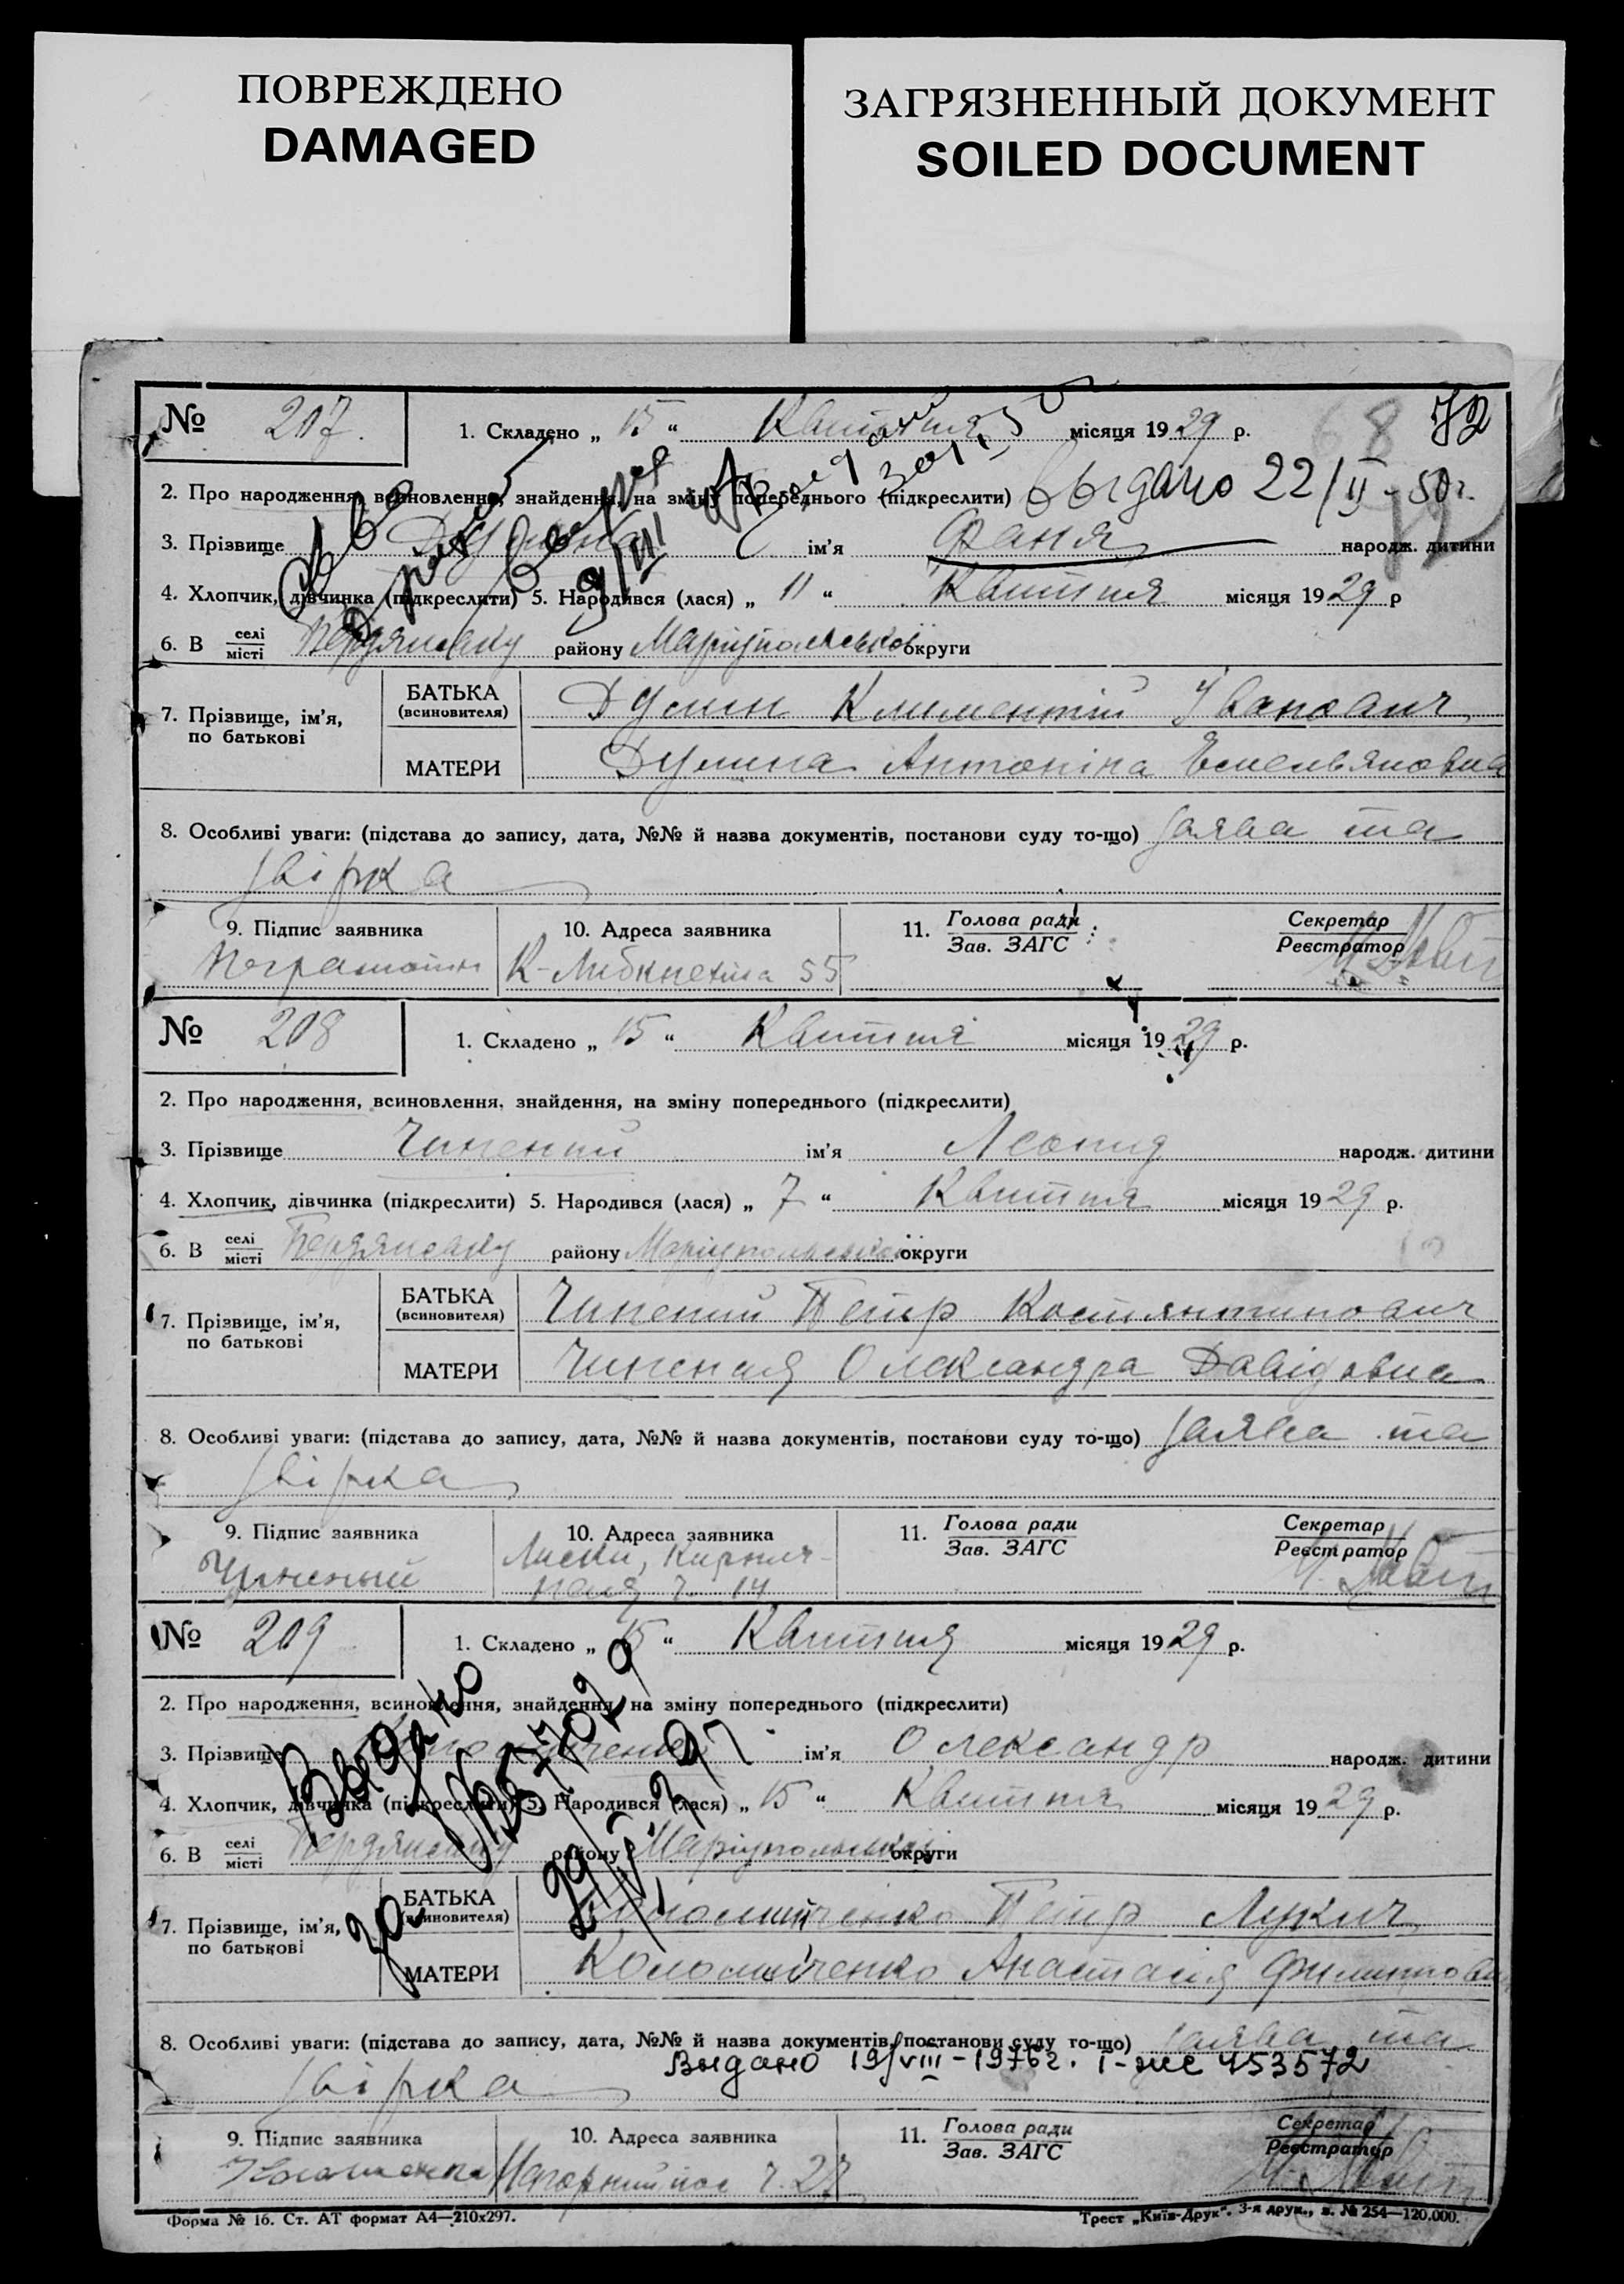 ПОВРЕЖДЕНО
DAMAGED
ЗАГРЯЗНЕННЫЙ ДОКУМЕНТ
SOILED DOCUMENT
№ 207. 1. Складено „ 15 “ Квитня місяця 19 29 р. 68 72
2. Про народження, всиновлення, знайдення, на зміну попереднього (підкреслити) Выдано 22/II - 50 г.
3. Прізвище ім’я Фаня народж. дитини
4. Хлопчик, дівчинка (підкреслити) 5. Народився (лася) „ 11 “ Квитня місяця 19 29 р
6. В селі місті Бердянську району Маріупольської округи
7. Прізвище, ім’я, по батькові
БАТЬКА (всиновителя) Дулин Климентій Іванович
МАТЕРИ Дулина Антоніна Емельяновна
8. Особливі уваги: (підстава до запису, дата, №№ й назва документів, постанови суду то-що) заява та
звірка
9. Підпис заявника 10. Адреса заявника 11. Голова ради Зав. ЗАГС Секретар Реєстратор
Неграмотн К-Либкнехта 55
№ 208 1. Складено „ 15 “ Квитня місяця 19 29 р.
2. Про народження, всиновлення, знайдення, на зміну попереднього (підкреслити)
3. Прізвище Чинений ім’я Леонид народж. дитини
4. Хлопчик, дівчинка (підкреслити) 5. Народився (лася) „ 7 “ Квитня місяця 19 29 р.
6. В селі місті Бердянську району Маріупольської округи
7. Прізвище, ім’я, по батькові
БАТЬКА (всиновителя) Чинений Петр Костянтинович
МАТЕРИ Чиненая Олександра Давідовна
8. Особливі уваги: (підстава до запису, дата, №№ й назва документів, постанови суду то-що) заява та
звірка
9. Підпис заявника 10. Адреса заявника 11. Голова ради Зав. ЗАГС Секретар Реєстратор
Чиненый Лиски, Кирпич-
ная ч. 14
№ 209 1. Складено „ 15 “ Квитня місяця 19 29 р.
2. Про народження, всиновлення, знайдення, на зміну попереднього (підкреслити)
3. Прізвище ім’я Олександр народж. дитини
4. Хлопчик, дівчинка (підкреслити) 5. Народився (лася) „ 15 “ Квитня місяця 19 29 р.
6. В селі місті Бердянську району Маріупольської округи
Выдано
7. Прізвище, ім’я, по батькові
БАТЬКА (всиновителя) Коломийченко Петр Лукич
МАТЕРИ Коломийченко Анастасія Филиповна
8. Особливі уваги: (підстава до запису, дата, №№ й назва документів, постанови суду то-що) заява та
Выдано 19/VIII - 1976 г. I-жс 453572
звірка
9. Підпис заявника 10. Адреса заявника 11. Голова ради Зав. ЗАГС Секретар Реєстратор
Нагорний пос ч. 27
Форма № 16. Ст. АТ формат А4—210х297. Трест „Київ-Друк“. 3-я друк., з. № 254—120.000.